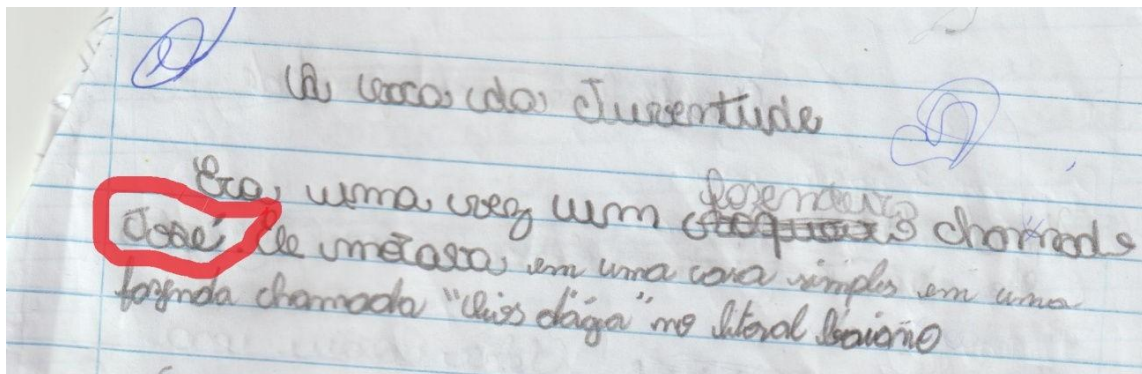 A vaca da Juventude
Era uma vez um fazendeiro chamado
José Ele morava em uma casa simples em uma
fazenda chamada "Olhos dága" no litoral baiano